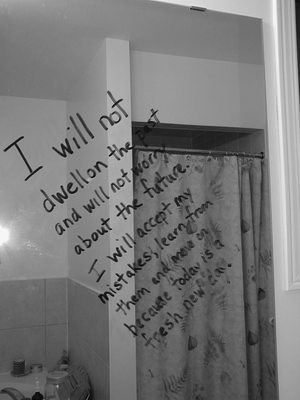 I will not
dwell on the past
and will not worry
about the future.
I will accept my
mistakes, learn from
them and move on
because today is a
fresh new day.